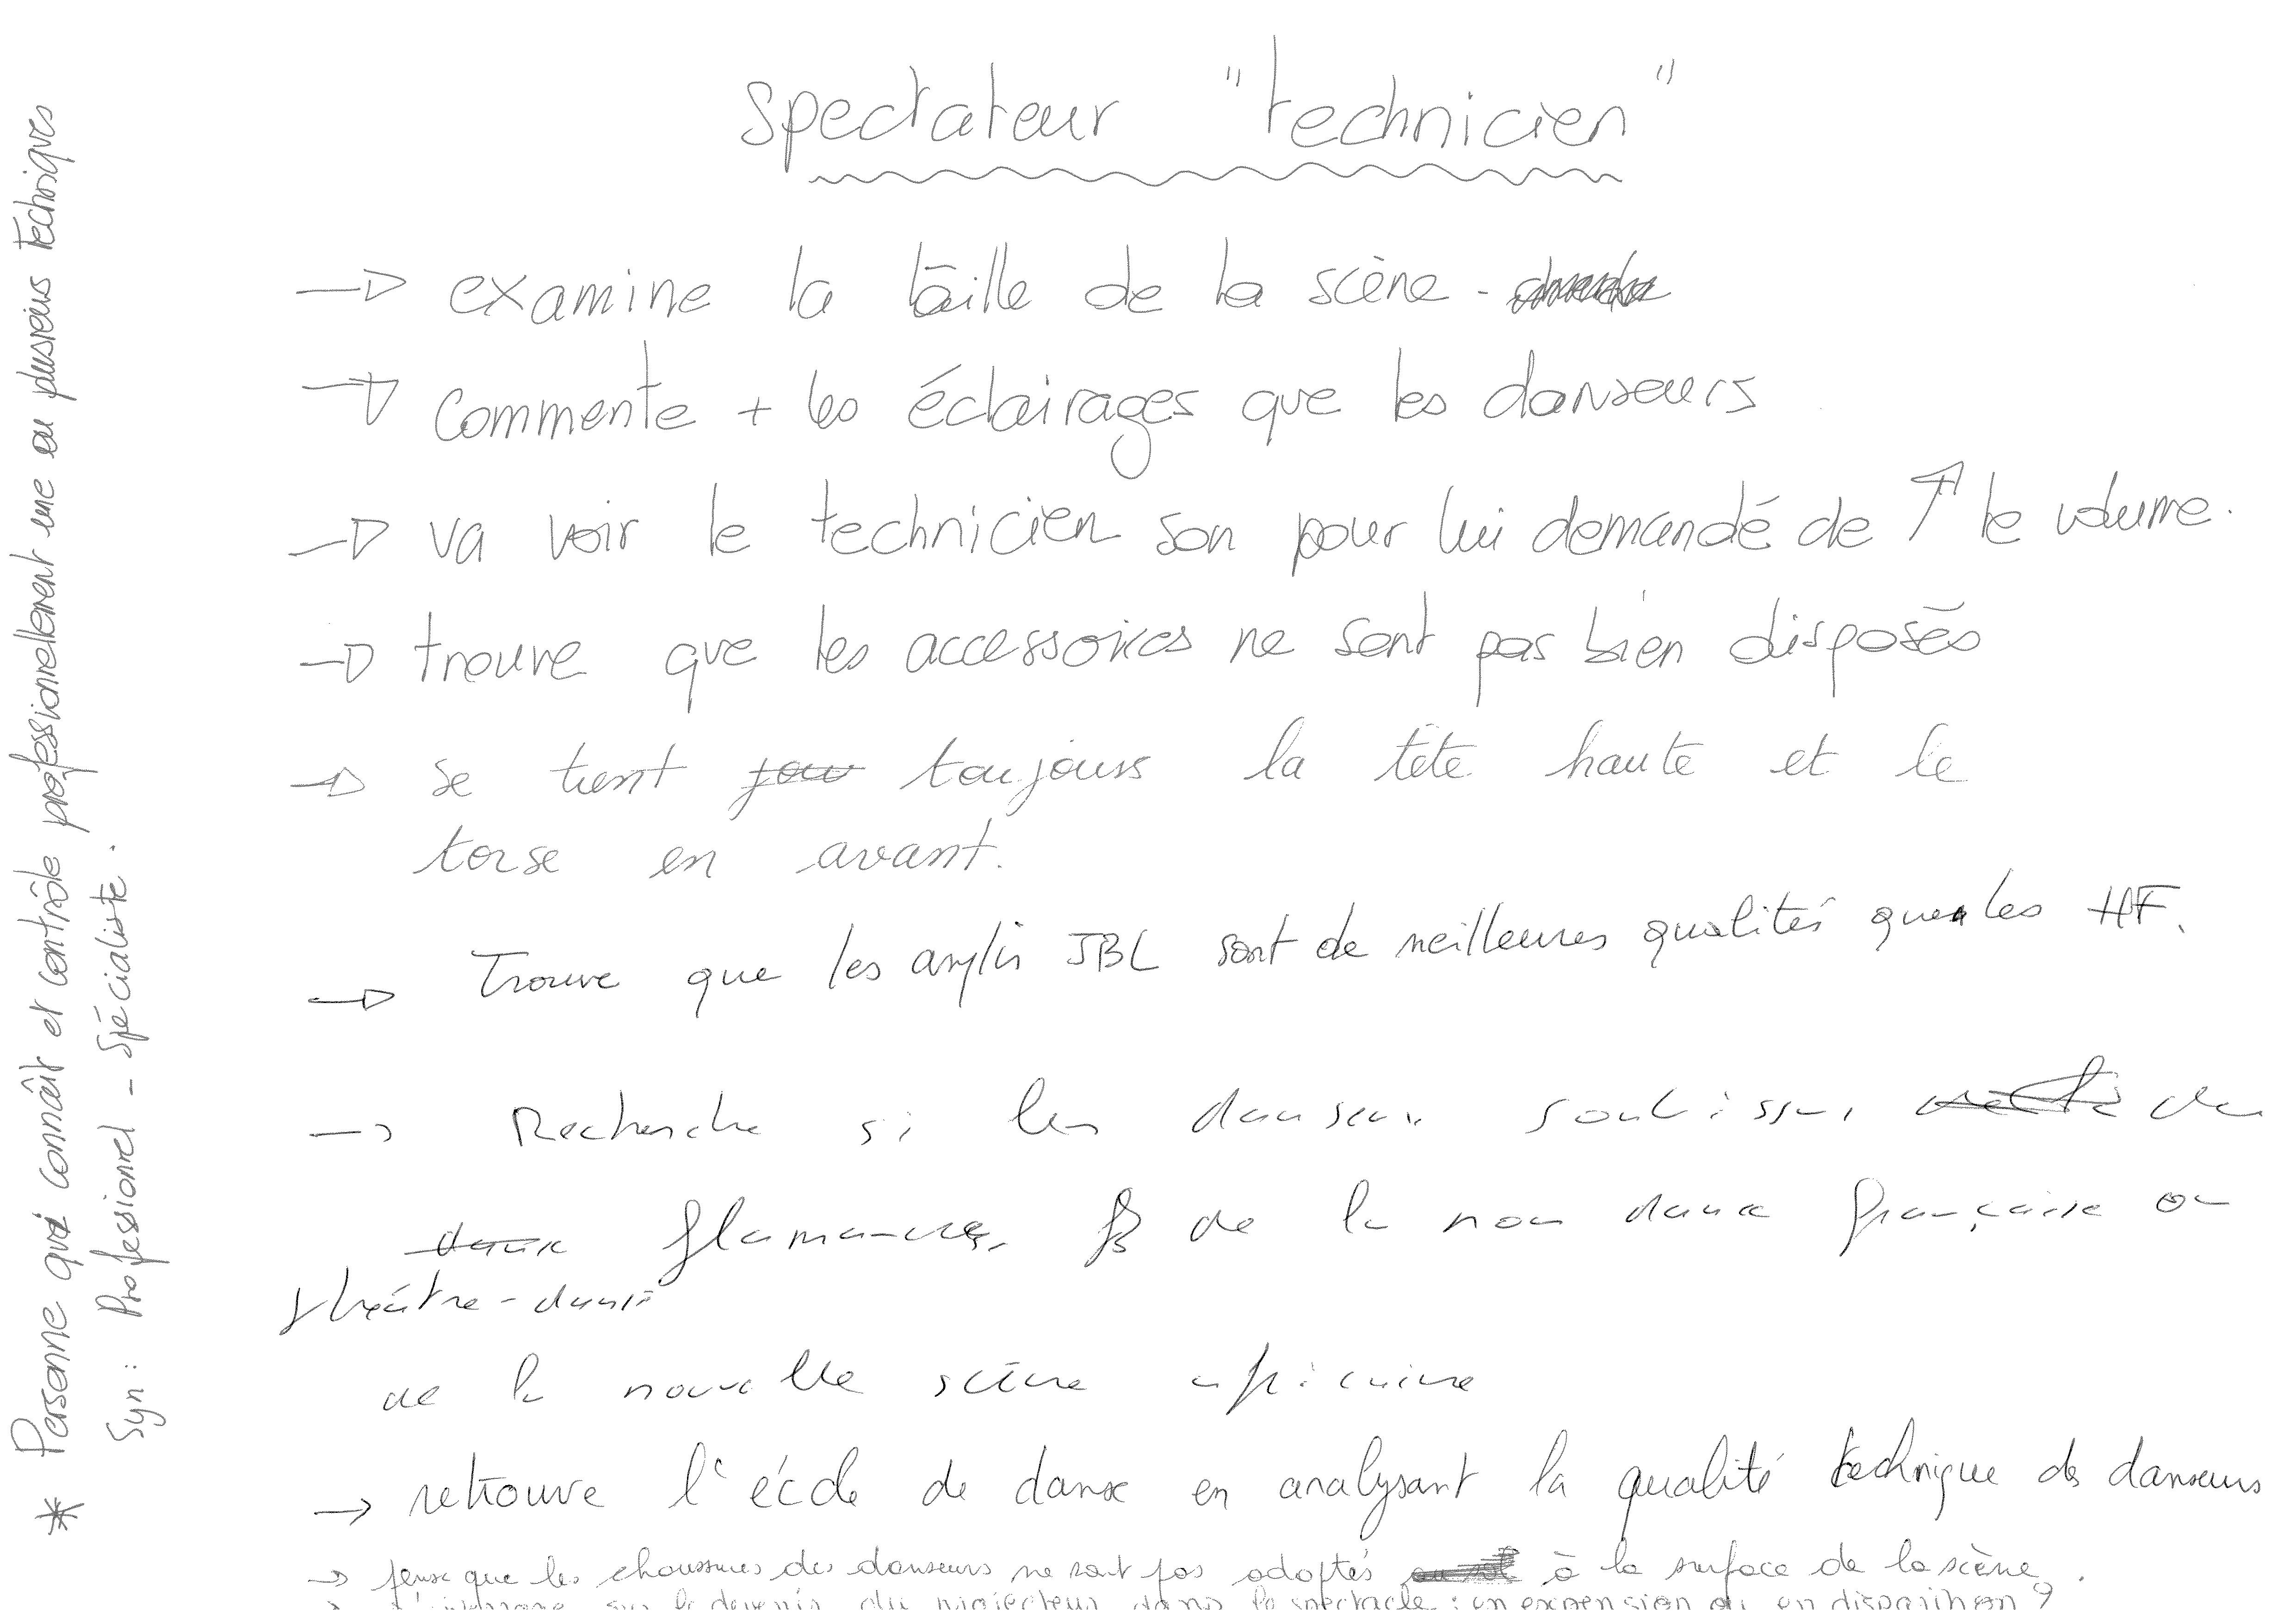 Spectateur "technicien"
→ examine la taille de la scène -
→ commente + les éclairages que les danseurs
→ va voir le technicien son pour lui demandé de ↑ le volume.
→ trouve que les accessoires ne sont pas bien disposés
→ se tient toujours la tête haute et le
torse en avant.
→ Trouve que les amplis JBL sont de meilleures qualités que les HF.
→ Recherche si les danseurs sont issus de
flamande, de la non danse française ou
théâtre-danse
de la nouvelle scène africaine
→ retrouve l'école de danse en analysant la qualité technique des danseurs
→ pense que les chaussures des danseurs ne sont pas adaptés à la surface de la scène.
→ s'interroge sur le devenir du projecteur dans le spectacle : un expension ou un disparition ?
* Personne qui connaît et contrôle professionnellement une ou plusieurs techniques
Syn : Professionnel - Spécialiste.